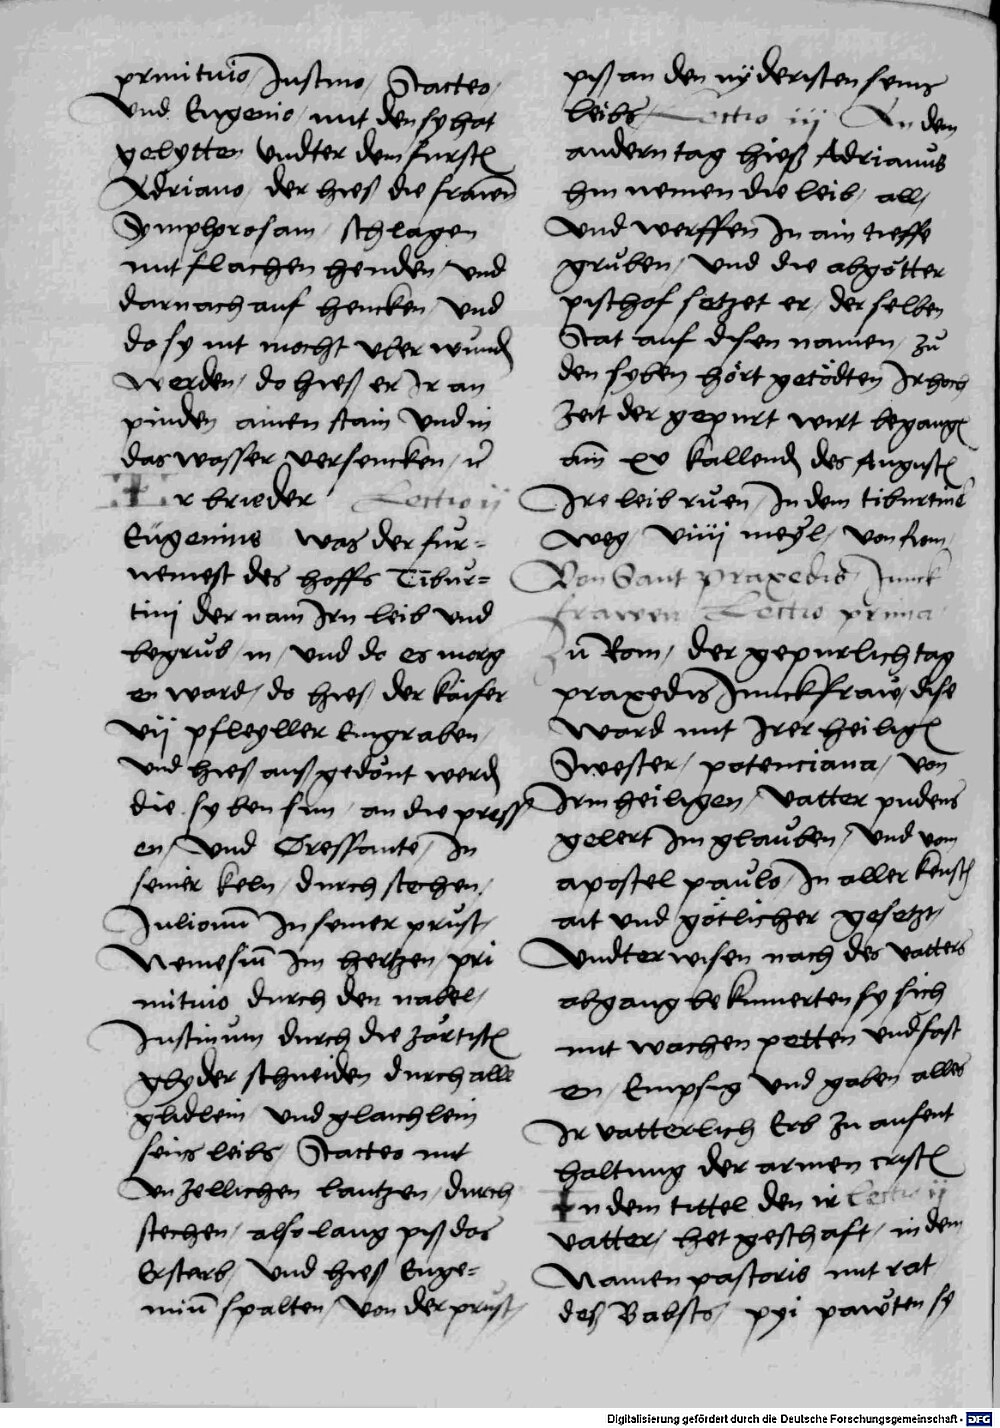 primitiuo / Justino / Stacteo /
Vnd Eugenio / mit den sy hat
gelytten Vndter dem furstn
Adriano / der hies die frawen
Symphorosam / schlagen
mit flachen henden / vnd
darnach auf hencken / vnd
do sy nit mocht vber wunden
werden / do hies er Ir an
pinden ainen stain Vnd in
das wasser versencken /
Ir brueder Lectio ij
Eugenius was der fur=
nemest des hoffs Tibur=
tini der nam Irn leib vnd
begrub in / vnd do es morg
en ward / do hies der kaiser
vij pfleyller Eingraben /
vnd hies auß gedont werden
die syben sun / an die press
en / Vnd Cressante / In
seiner keln / durch stechen /
Julianum In seiner prust /
Nemesium Im hertzen / pri
mitiuo durch den nabel /
Justinum durch die zartistn
glyder schneiden durch alle
glidlein / vnd glaichlein
seins leibs / Stacteo mit
vnzellichen lantzen / durch
stechen / also lang piß das
Er starb / Vnd hies Euge=
nium spalten / von der prust /
piß an den nyderisten seins
leibs / Lectio iij An dem
andern tag hieß Adrianus
hin nemen die leib / all /
vnd werffen In ain tieffe
gruben / vnd die abgötter
pischof setzet er / der selben
Stat auf disen namen / zu
den syben hört getödten Ir hoch
zeit der gepurt wirt begangen
am xv kallend des Augustn
Ire leib ruen / In dem tiburtine
weg / viiij meyl / von Rom /
Von Sant praxedis Junck
frawen Lectio prima
Zu Rom / der gepurlich tag
praxedis Junckfraw / dise
ward mit Irer heilign
Swester / potenciana / von
Irm heiligen / vatter pudens
gelert Im glauben / vnd vom
apostel paulo / In aller keusch
ait vnd götlicher gesetzt /
Vndterwisen nach des vatters
abgang bekumerten sy sich
mit wachen petten vnd fast
en / Empsig vnd gaben alles
Ir vatterlich Erb zu aufent
haltung der armen cristn
In dem tittel den ir Lectio ij
vatter / het geschaft / in dem
Namen pastoris mit rat
deß Babsts / pyi pawten sy
Digitalisierung gefördert durch die Deutsche Forschungsgemeinschaft - DFG